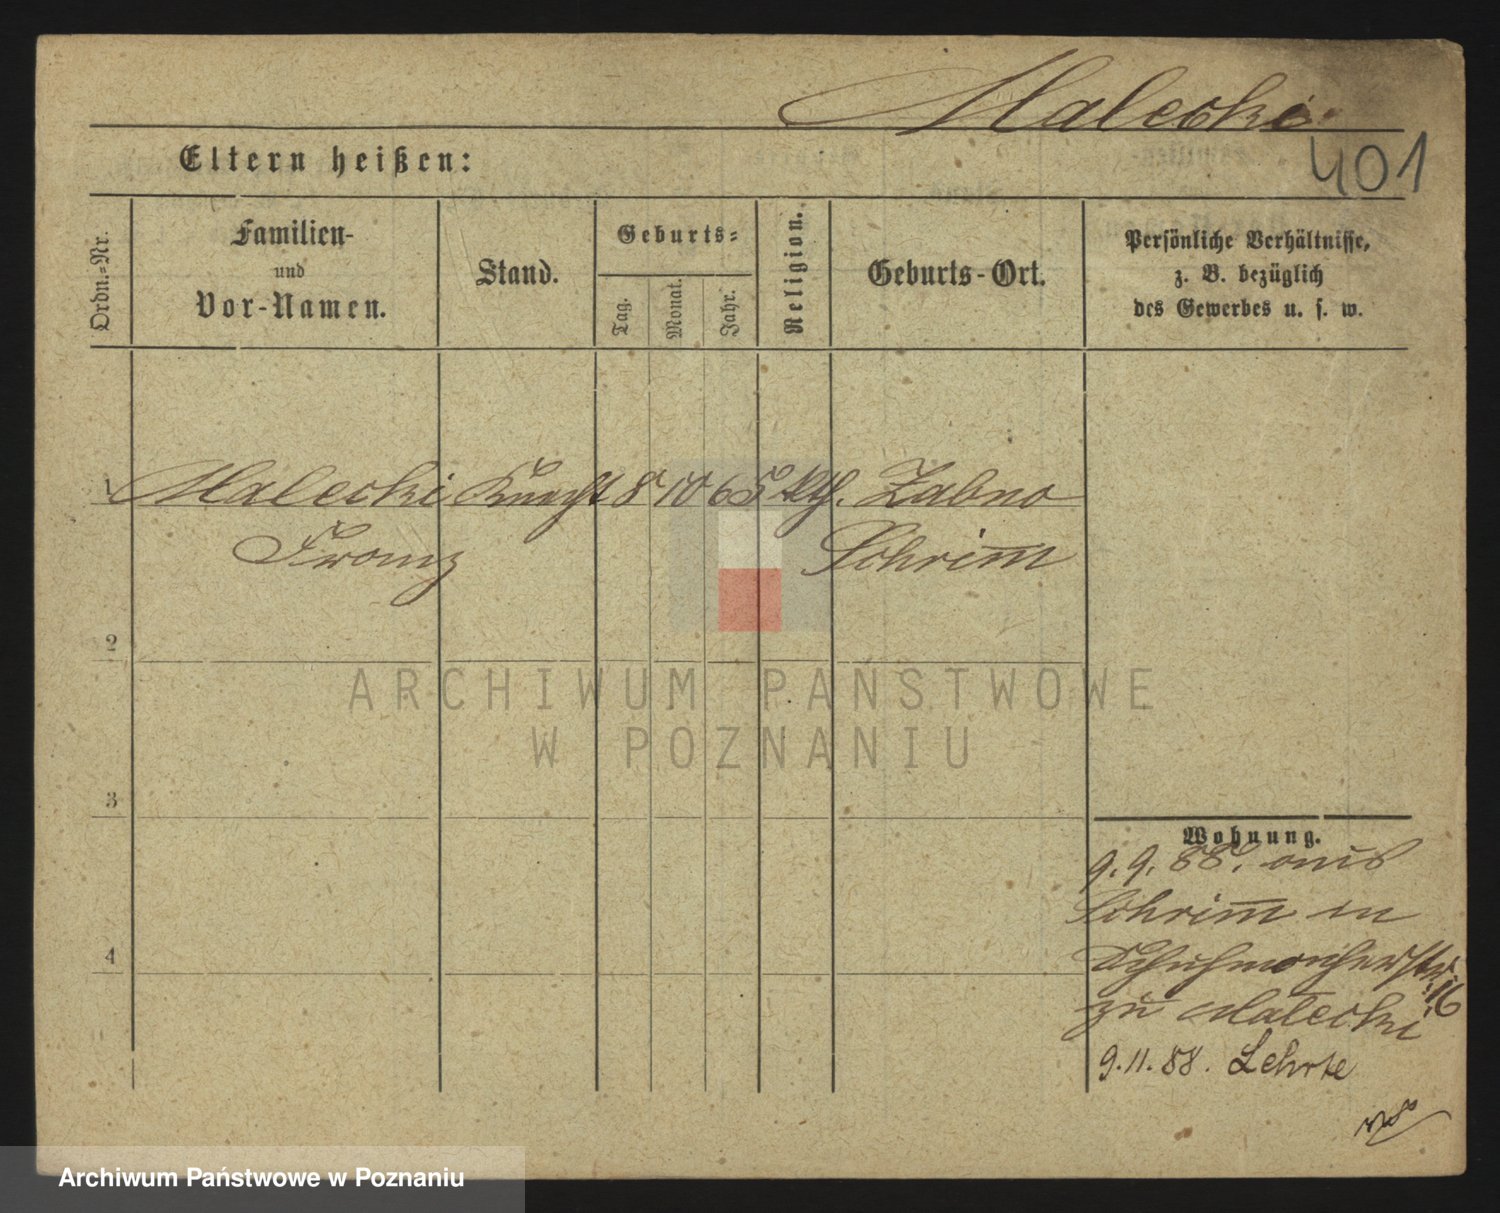 Malecki
401
Eltern heißen:
Ordn.-Nr.
Familien-
und
Vor-Namen.
Stand.
Geburts-
Tag.
Monat.
Jahr.
Religion.
Geburts-Ort.
Persönliche Verhältnisse,
z. B. bezüglich
des Gewerbes u. s. w.
1 Malecki Knecht 8 10 65 kth. Zabno
Franz Schrimm
2
3
4
ARCHIWUM PAŃSTWOWE
W POZNANIU
Wohnung.
9. 9. 88. aus
Schrimm in
Schuhmacherstr. 16
zu Malecki
9. 11. 88. Lehrte
Archiwum Państwowe w Poznaniu